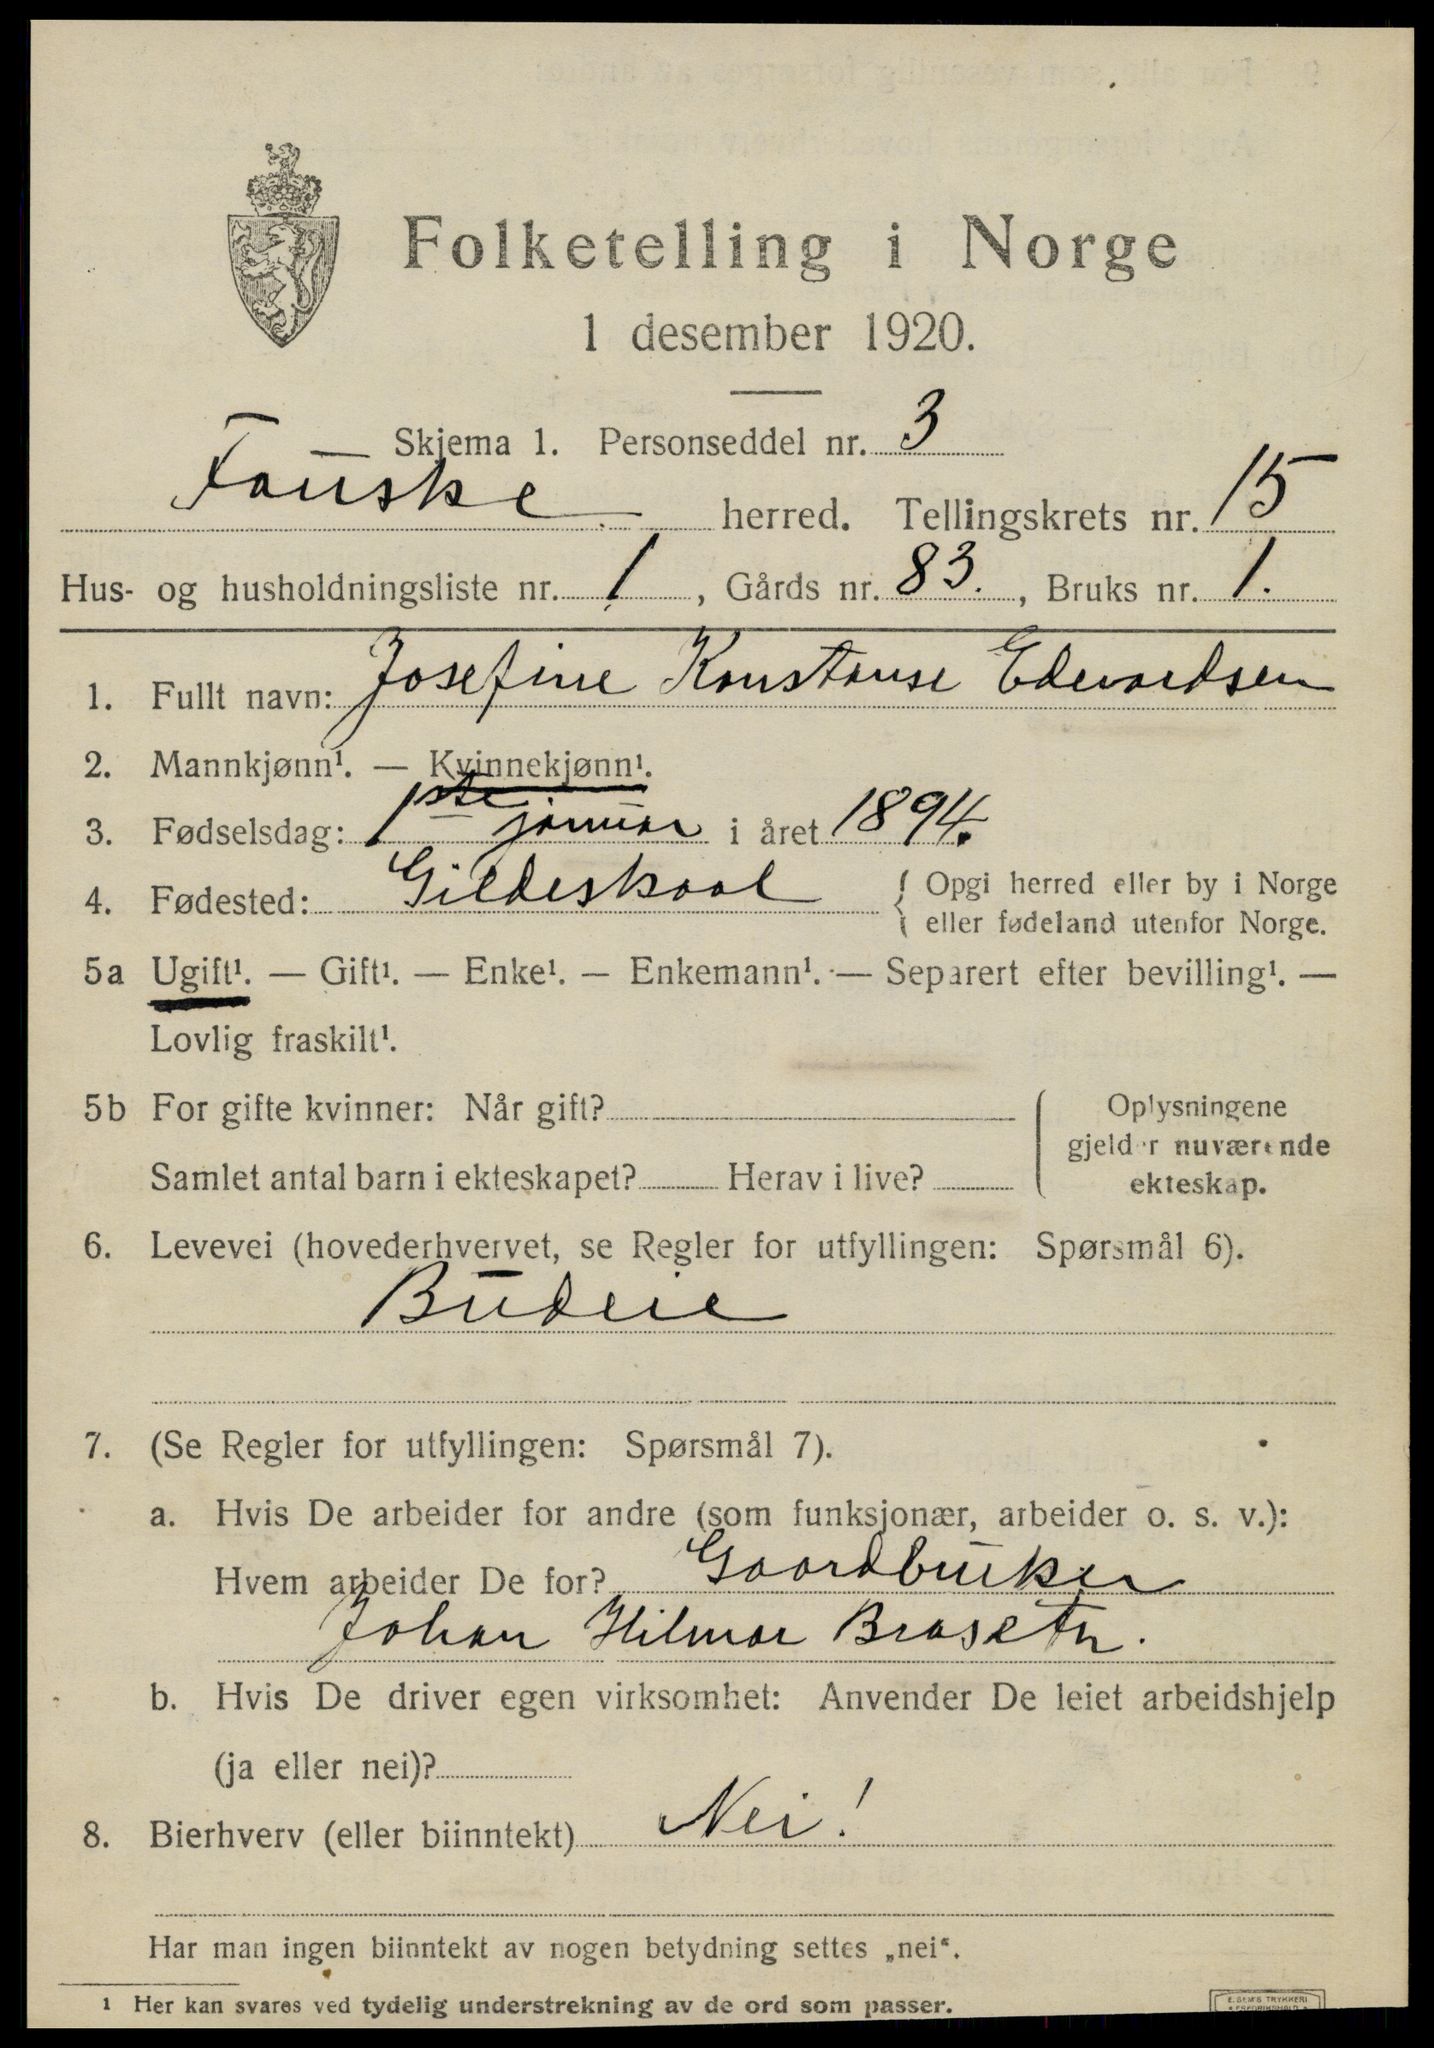 Folketelling i Norge
1 desember 1920.
Skjema 1. Personseddel nr. 3
Fauske herred. Tellingskrets nr. 15
Hus- og husholdningsliste nr. 1, Gårds nr. 83., Bruks nr. 1.
1. Fullt navn: Josefine Konstanse Edvardsen
2. Mannkjønn¹. — Kvinnekjønn¹.
3. Fødselsdag: 1ste januar i året 1894.
4. Fødested: Gildeskaal { Opgi herred eller by i Norge
eller fødeland utenfor Norge.
5a Ugift¹. — Gift¹. — Enke¹. — Enkemann¹. — Separert efter bevilling¹. —
Lovlig fraskilt¹.
5b For gifte kvinner: Når gift? Oplysningene
gjelder nuværende
Samlet antal barn i ekteskapet? Herav i live? ekteskap.
6. Levevei (hovederhvervet, se Regler for utfyllingen: Spørsmål 6).
Budeie
7. (Se Regler for utfyllingen: Spørsmål 7).
a. Hvis De arbeider for andre (som funksjonær, arbeider o. s. v.):
Hvem arbeider De for? Gaardbruker
Johan Hilmar
b. Hvis De driver egen virksomhet: Anvender De leiet arbeidshjelp
(ja eller nei)?
8. Bierhverv (eller biinntekt) Nei!
Har man ingen biinntekt av nogen betydning settes „nei“.
1 Her kan svares ved tydelig understrekning av de ord som passer.
E. SEM'S TRYKKERI
FREDRIKSHALD